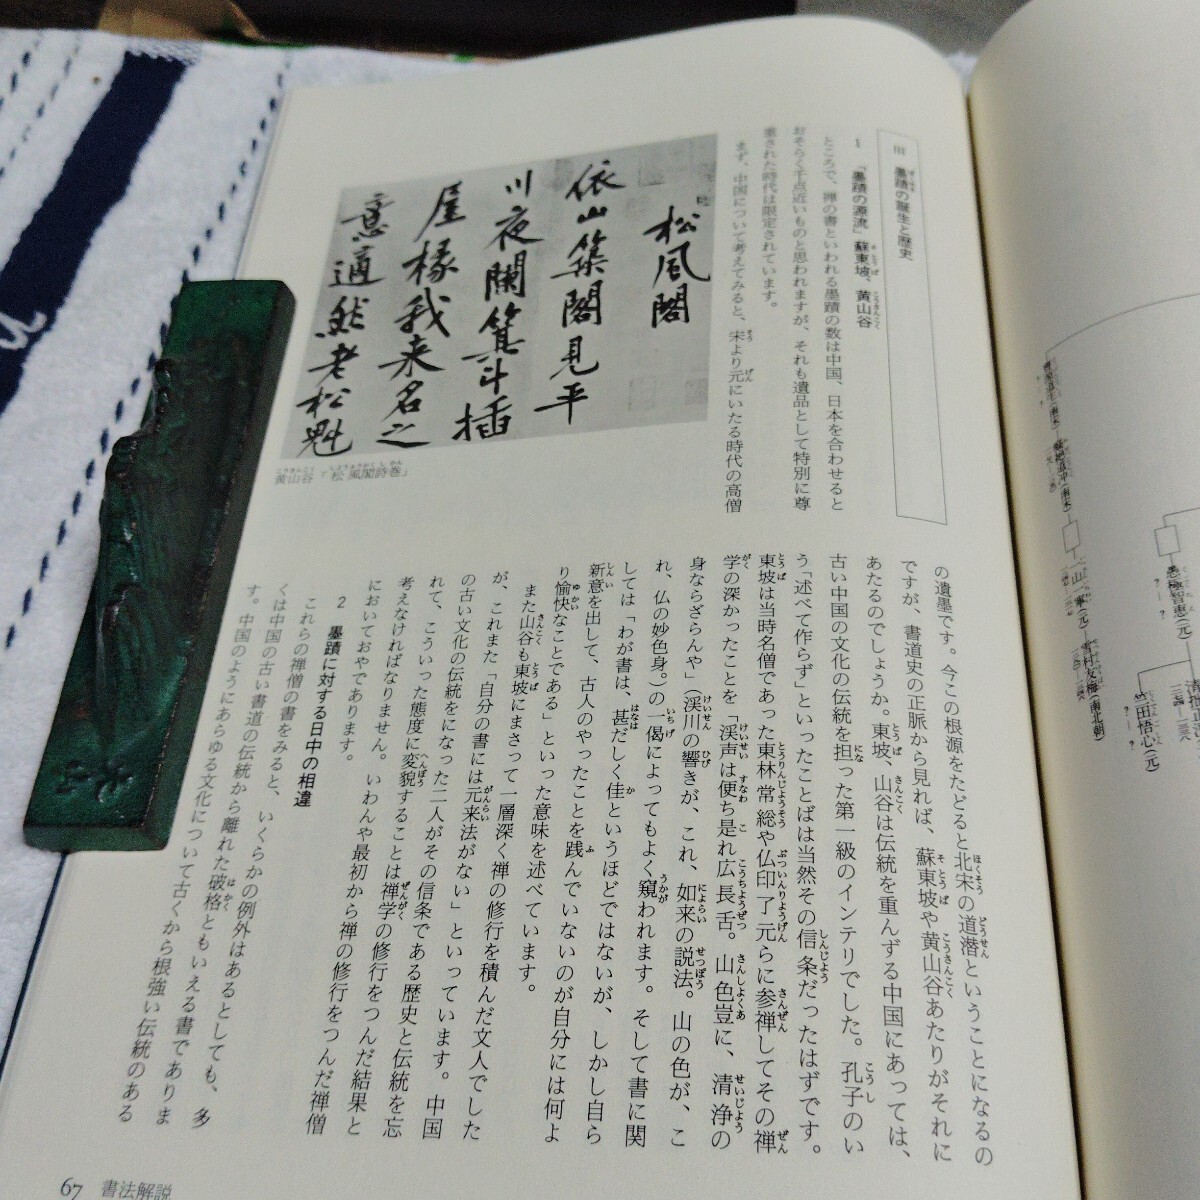 III 墨蹟の誕生と歴史
1 「墨蹟の源流」蘇東坡、黄山谷
ところで、禅の書といわれる墨蹟の数は中国、日本を合わせると
おそらく千点近いものと思われますが、それも遺品として特別に尊
重された時代は限定されています。
まず、中国について考えてみると、宋より元にいたる時代の高僧
松風閣
依山築閣見平
川夜闌箕斗插
屋椽我来名之
意適然老松魁
黄山谷「松風閣詩巻」
の遺墨です。今この根源をたどると北宋の道潜ということになるの
ですが、書道史の正脈から見れば、蘇東坡や黄山谷あたりがそれに
あたるのでしょうか。東坡、山谷は伝統を重んずる中国にあっては、
古い中国の文化の伝統を担った第一級のインテリでした。孔子のい
う「述べて作らず」といったことばは当然その信条だったはずです。
東坡は当時名僧であった東林常総や仏印了元らに参禅してその禅
学の深かったことを「渓声は便ち是れ広長舌。山色豈に、清浄の
身ならざらんや」(渓川の響きが、これ、如来の説法。山の色が、こ
れ、仏の妙色身。)の一偈によってもよく窺われます。そして書に関
しては「わが書は、甚だしく佳というほどではないが、しかし自ら
新意を出して、古人のやったことを践んでいないのが自分には何よ
り愉快なことである」といった意味を述べています。
また山谷も東坡にまさって一層深く禅の修行を積んだ文人でした
が、これまた「自分の書には元来法がない」といっています。中国
の古い文化の伝統をになった二人がその信条である歴史と伝統を忘
れて、こういった態度に変貌することは禅学の修行をつんだ結果と
考えなければなりません。いわんや最初から禅の修行をつんだ禅僧
においておやであります。
2 墨蹟に対する日中の相違
これらの禅僧の書をみると、いくらかの例外はあるとしても、多
くは中国の古い書道の伝統から離れた破格ともいえる書でありま
す。中国のようにあらゆる文化について古くから根強い伝統のある
67 書法解説
愚極智恵(元)
一山一寧(元)
雪村友梅(南北朝)
竺田悟心(元)